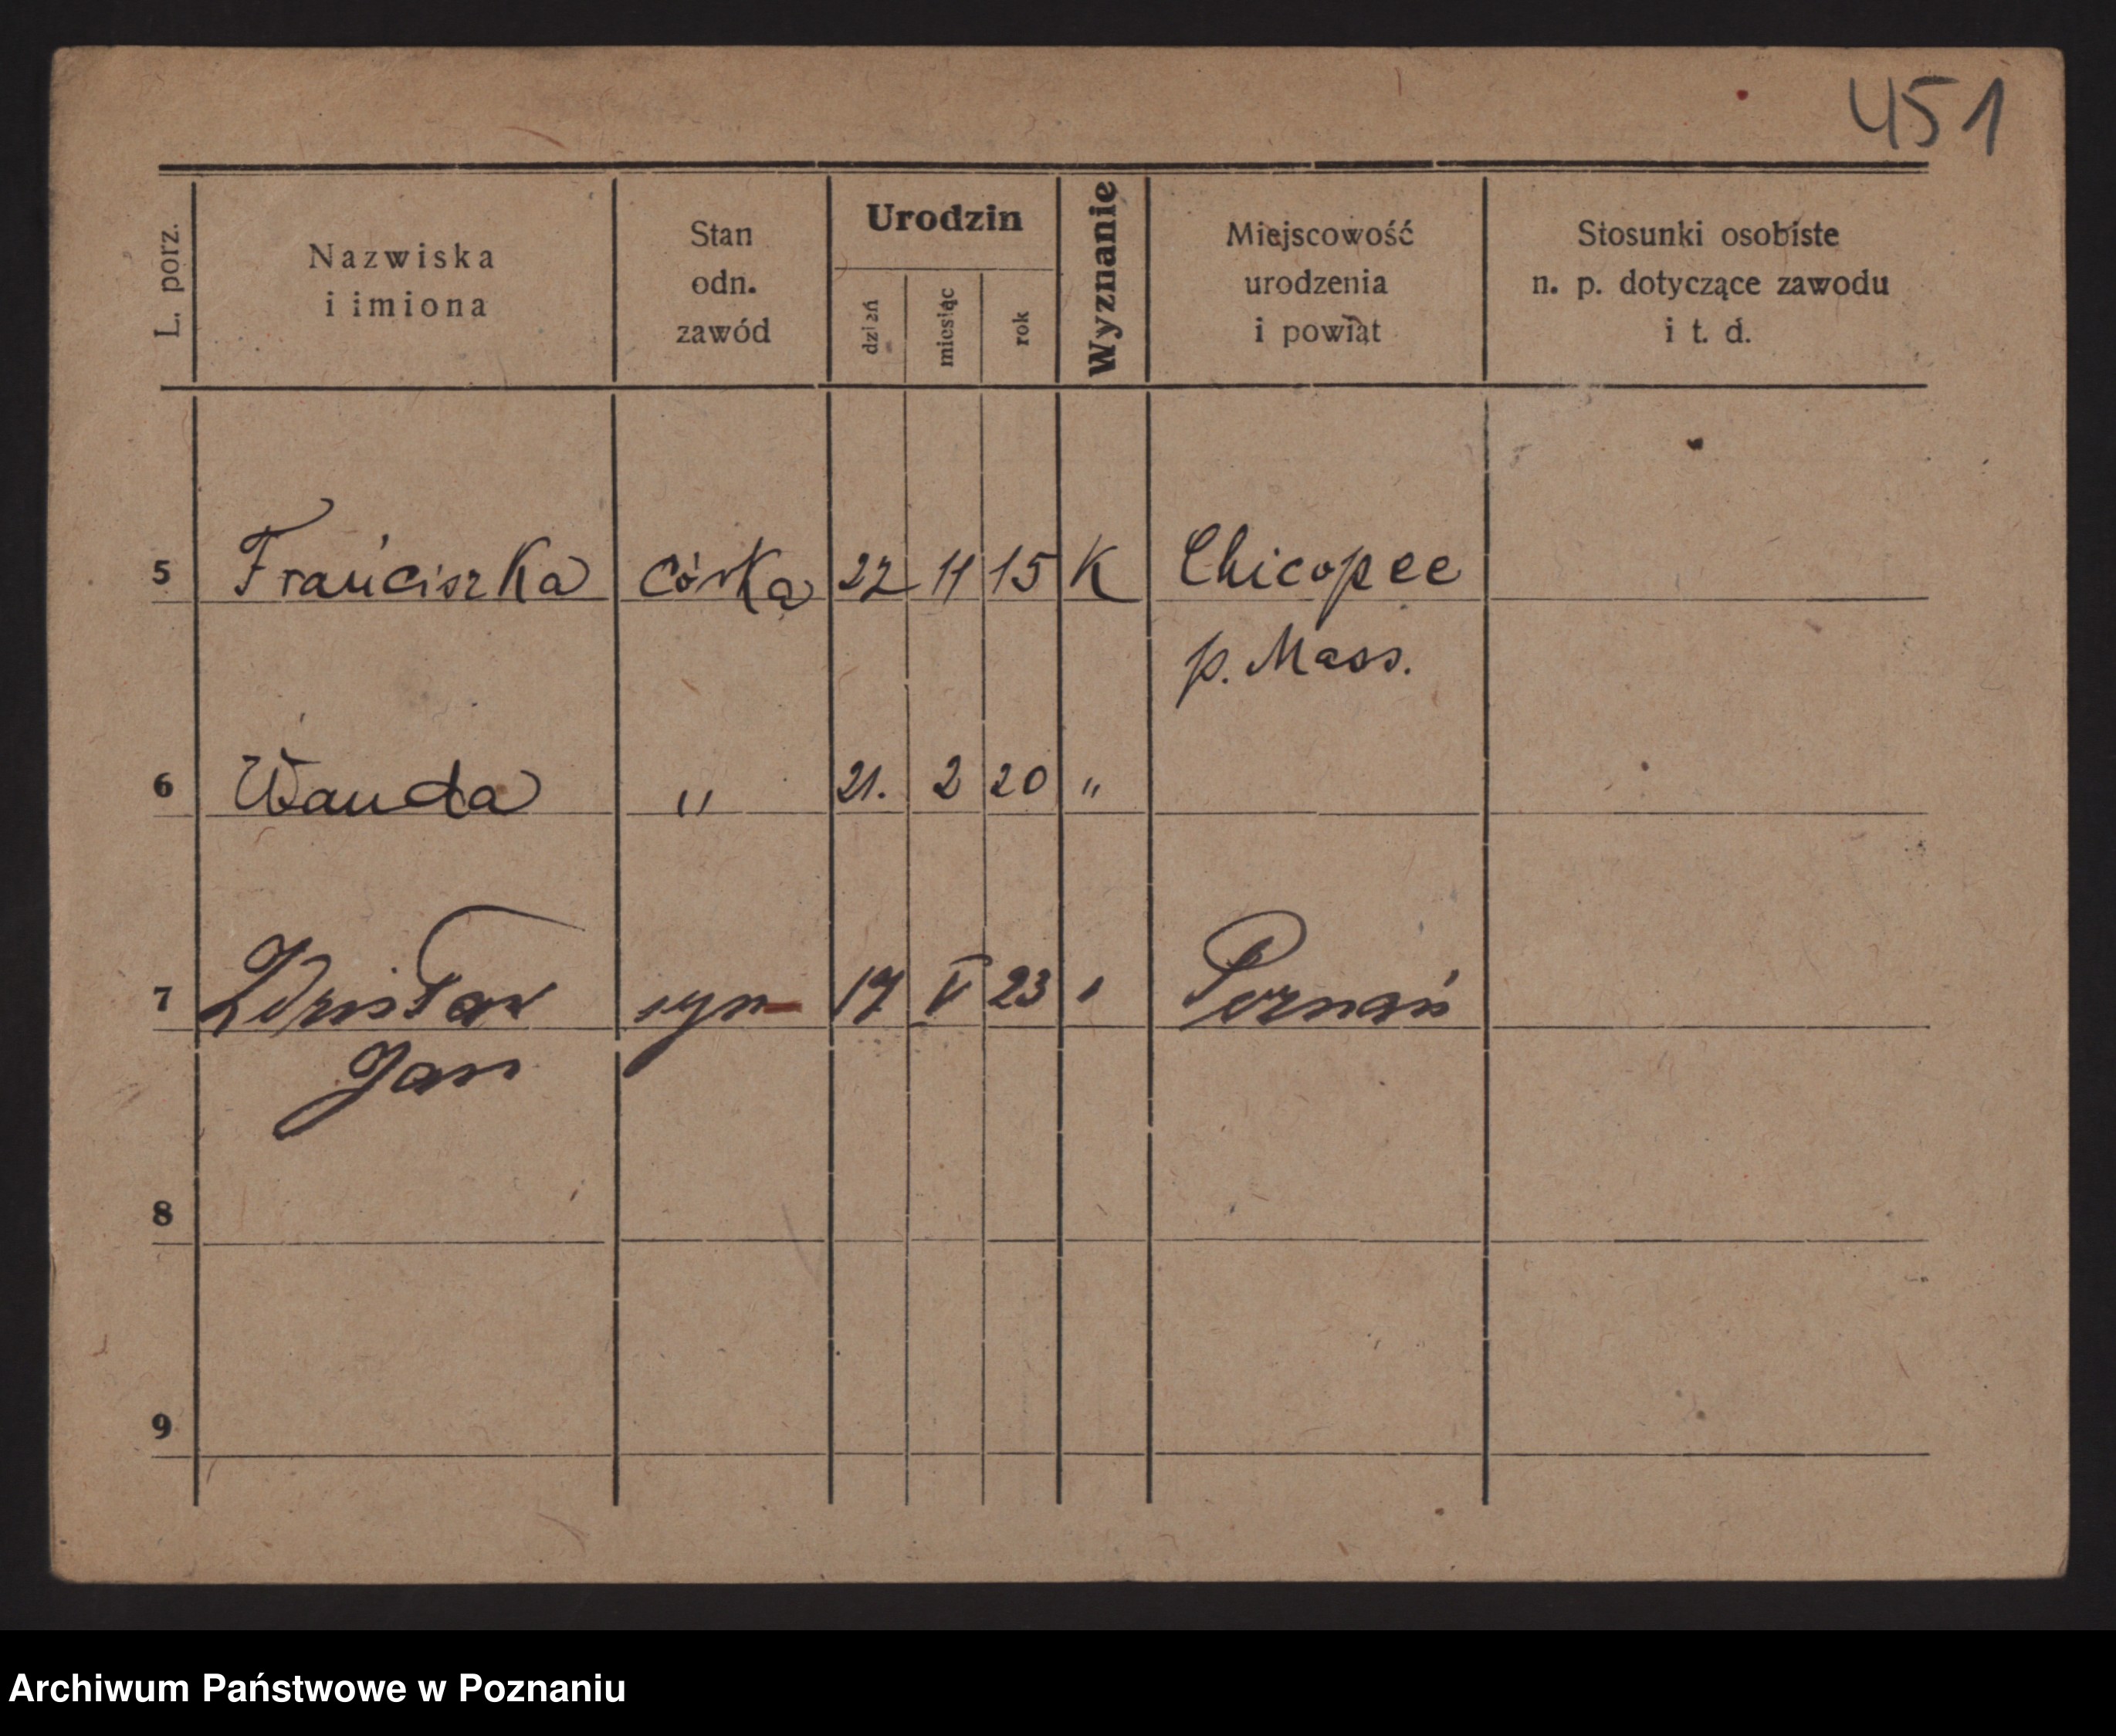 451
L. porz.
Nazwiska
i imiona
Stan
odn.
zawód
Urodzin
dzień
miesiąc
rok
Wyznanie
Miejscowość
urodzenia
i powiat
Stosunki osobiste
n. p. dotyczące zawodu
i t. d.
5 Franciszka córka 22 11 15 K Chicopee
p. Mass.
6 Wanda " 21. 2 20 "
7 Zdzisław syn 17 V 23 " Poznań
Jan
8
9
Archiwum Państwowe w Poznaniu